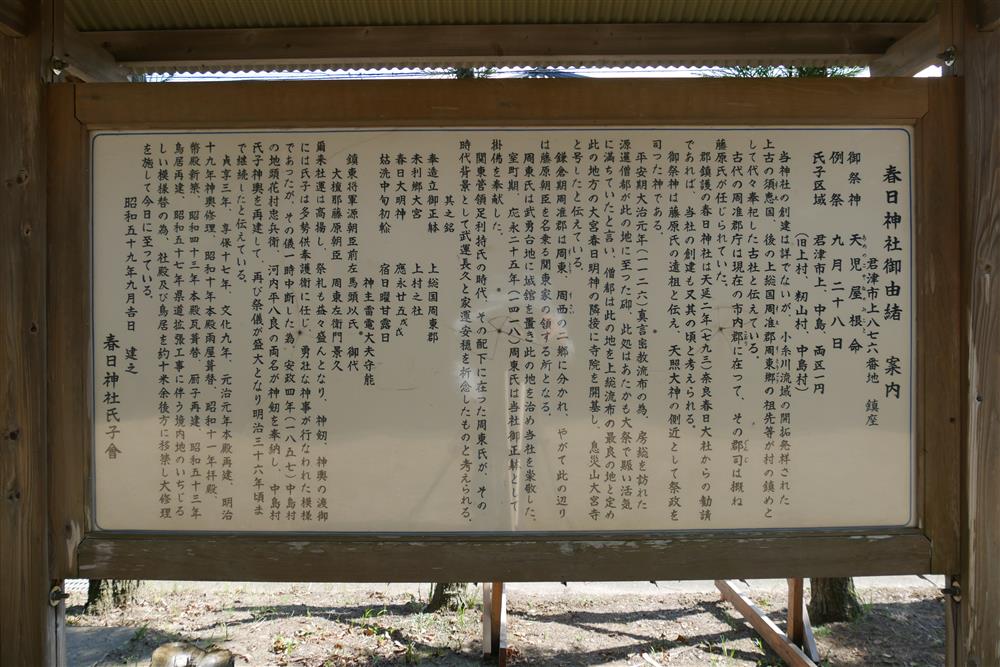 春日神社御由緒　案内
君津市上八七六番地　鎮座
御祭神　天児屋根命
例　祭　九月二十八日
氏子区域　君津市上、中島、両区一円
（旧上村、籾山村、中島村）
当神社の創建は詳でないが、小糸川流域の開拓発祥された
上古の須恵国、後の上総国周准郡周東郷の祖先等が村の鎮めと
して代々奉祀した古社と伝えている。
古代の周准郡庁は現在の市内郡に在つて、その郡司は概ね
藤原氏が任じられていた。
郡鎮護の春日神社は天延二年（七九三）奈良春日大社からの勧請
であれば、当社の創建も又其の頃と考えられる。
御祭神は藤原氏の遠祖と伝え、天照大神の側近として祭政を
司った神である。
平安期大治元年（一一二六）真言密教流布の為、房総を訪れた
源暹僧都が此の地に至った砌、此処はあたかも大祭で賑い活気
に満ちていたと言い、僧都は此の地を上総流布の最良の地と定め
此の地方の大宮春日明神の隣接に寺院を開基し、息災山大宮寺
と号したと伝えている。
鎌倉期周准郡は周東、周西の二郷に分かれ、やがて此の辺り
は藤原朝臣を名乗る関東家の領する所となる。
周東氏は武勇台地に城館を置き此の地を治め当社を崇敬した。
室町期、応永二十五年（一四一八）周東氏は当社御正躰として
掛佛を奉献した。
関東管領足利持氏の時代、その配下に在った周東氏が、その
時代背景として武運長久と家運安穏を祈念したものと考えられる。
其之銘
奉造立御正躰　上総国周東郡
末利郷大宮　上村之社
春日大明神　應永廿五戊戌
姑洗中旬初松　宿日曜甘露日
神主雷電大夫守能
鎮東将軍源朝臣前左馬頭以氏、御代
大檀那藤原朝臣　周東左衛門景久
爾来社運は高揚し、祭礼も益々盛んとなり、神剱、神輿の渡御
には氏子は多勢供奉護衛に任じ、勇壮な神事が行なわれた模様
であったが、その儀一時中断した為、安政四年（一八五七）中島村
の地頭花村忠兵衛、河内平八良の両名が神剱を奉納し、中島村
氏子神輿を再建して、再び祭儀が盛大となり明治三十六年頃ま
で継続したと伝えている。
貞享三年、享保十七年、文化九年、元治元年本殿再建、明治
十九年神輿修理、昭和十年本殿雨屋葺替、昭和十一年拝殿、
幣殿新築、昭和四十三年本殿瓦葺替、厨子再建、昭和五十三年
鳥居再建、昭和五十七年県道拡張工事に伴う境内地のいちじる
しい模様替の為、社殿及び鳥居を約十米余後方に移築し大修理
を施して今日に至っている。
昭和五十九年九月吉日　建之
春日神社氏子會